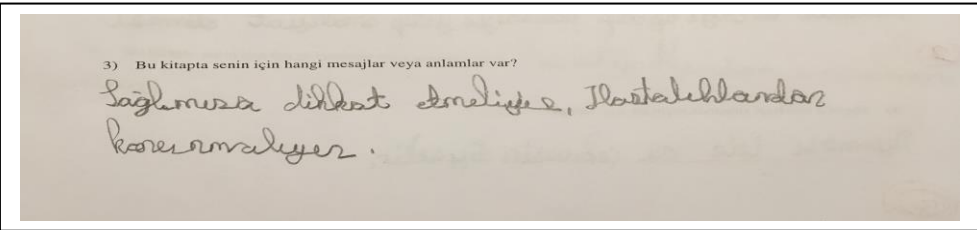 3) Bu kitapta senin için hangi mesajlar veya anlamlar var?
Sağlımıza dikkat etmeliyiz, Hastalıklardan
korunmalıyız.